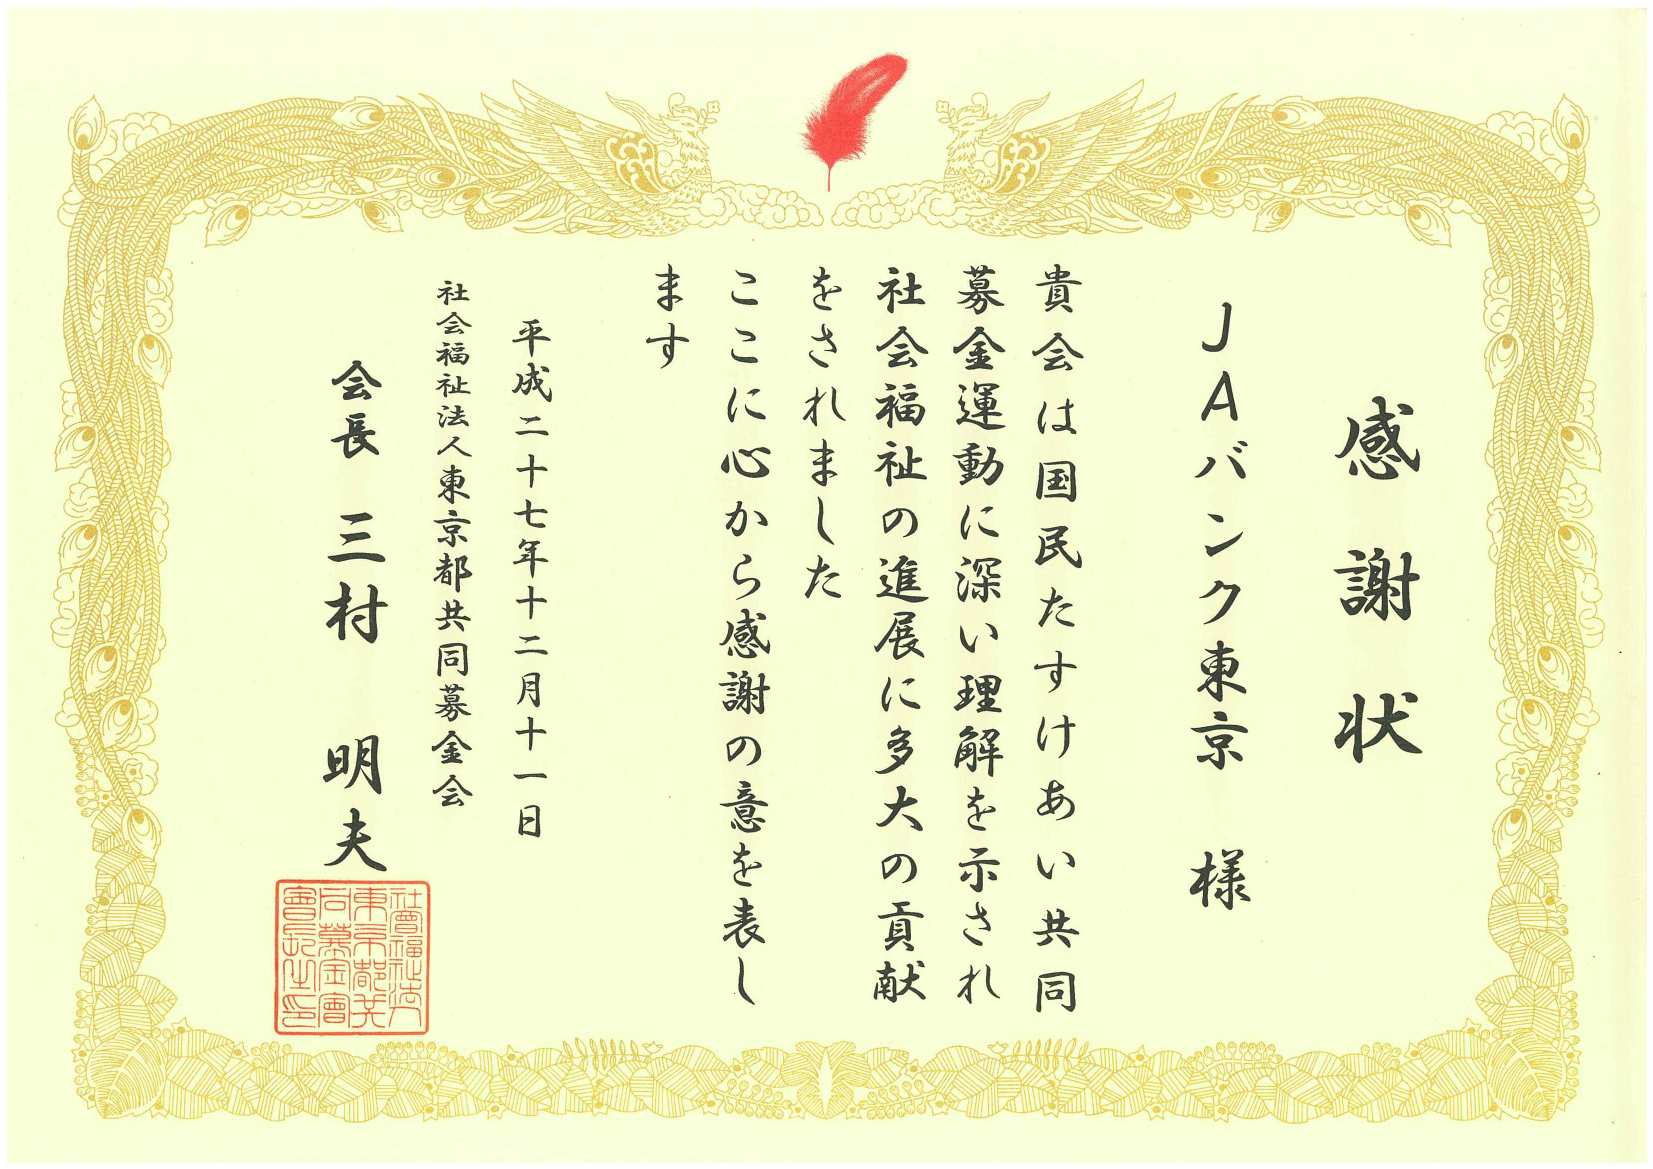 感謝状
JAバンク東京 様
貴会は国民たすけあい共同
募金運動に深い理解を示され
社会福祉の進展に多大の貢献
をされました
ここに心から感謝の意を表し
ます
平成二十七年十二月十一日
社会福祉法人東京都共同募金会
会長 三村 明夫
社會福祉法人
東京都共
同募金會
會長之印